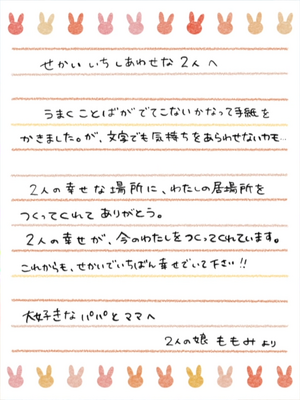 せかいいちしあわせな2人へ
うまくことばがでてこないかなって手紙を
かきました。が、文字でも気持ちをあらわせないかも…
2人の幸せな場所に、わたしの居場所を
つくってくれてありがとう。
2人の幸せが、今のわたしをつくってくれています。
これからも、せかいでいちばん幸せでいて下さい!!
大好きなパパとママへ
2人の娘 ももみより